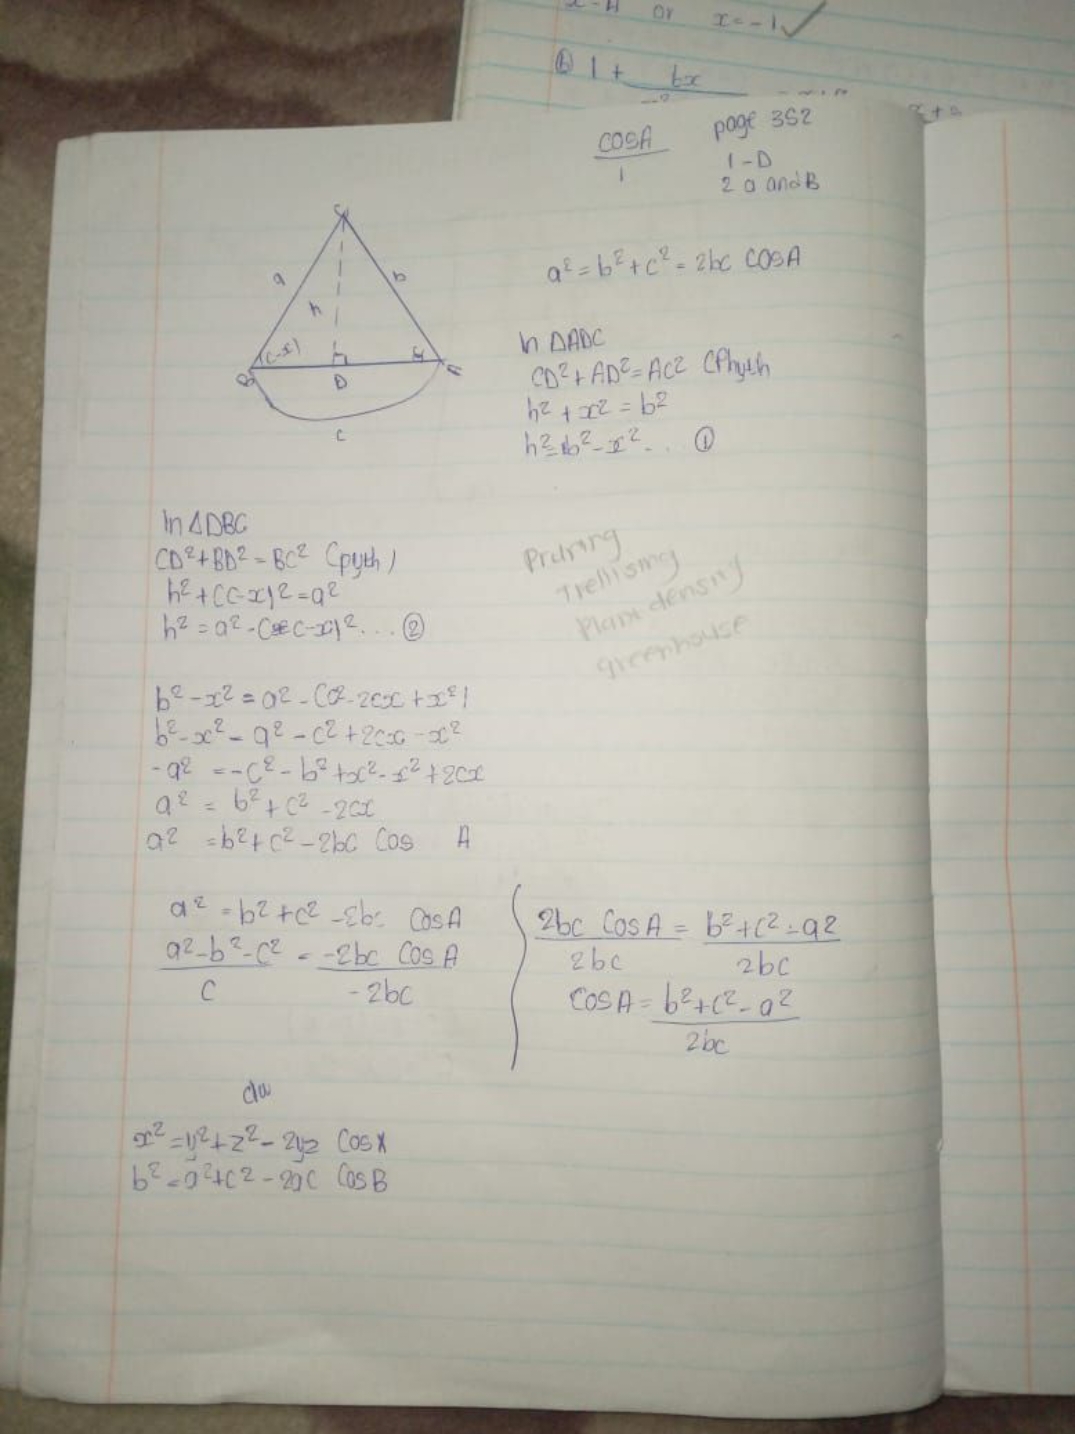 or x = -1
ⓑ 1 + 6x
cosA page 352
1
1 - D
2 a and B
C
a b
h
(c-x)
B D A
c
a² = b² + c² = 2bc COSA
In ΔADC
CD² + AD² = AC² (Phyth
h² + x² = b²
h² = b² - x² . . . ①
In ΔDBC
CD² + BD² = BC² (pyth)
h² + (c-x)² = a²
h² = a² - (c-x)² . . . ②
Prdning
Trellising
Plant density
greenhouse
b² - x² = a² - (c² - 2cx + x²)
b² - x² = a² - c² + 2cx - x²
-a² = -c² - b² + x² - x² + 2cx
a² = b² + c² - 2cx
a² = b² + c² - 2bc Cos A
a² = b² + c² - 2bc CosA
a² - b² - c² = -2bc CosA
c -2bc
2bc CosA = b² + c² - a²
2bc 2bc
COSA = b² + c² - a²
2bc
x² = y² + z² - 2yz CosX
b² = a² + c² - 2ac CosB